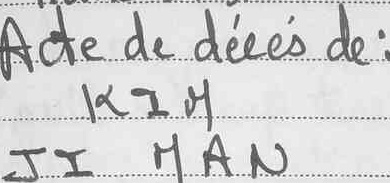 Acte de décés de:
KIM
JI MAN